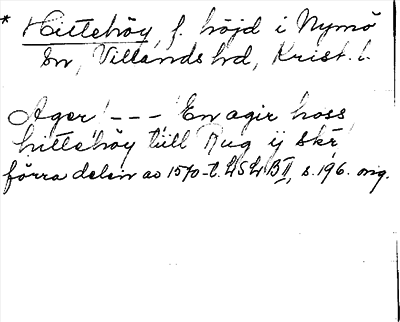 * Hittehöy, f. höjd i Nymö
sn, Villands hd, Krist. l.
Ager! --- En agir hoss
hittehöy tüll Rug ij skr
förra delen av 1570-t. LSLBII, s. 196. orig.